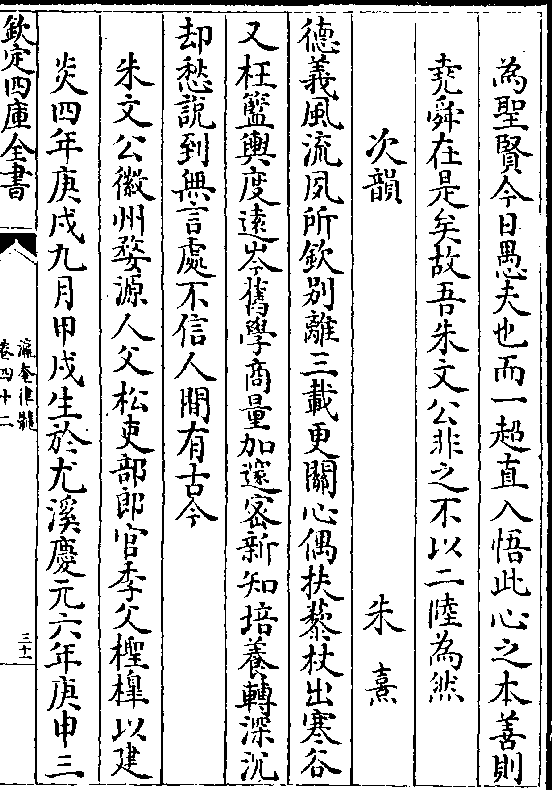 為聖賢今日愚夫也而一超直入悟此心之本善則
堯舜在是矣故吾朱文公非之不以二陸為然
次韻 朱熹
德義風流夙所欽别離三載更關心偶扶藜杖出寒谷
又枉籃輿度遠岑舊學商量加邃密新知培養轉深沉
却愁説到無言處不信人間有古今
朱文公徽州婺源人父松吏部郎官季父檉橰以建
炎四年庚戌九月甲戌生於尤溪慶元六年庚申三
欽定四庫全書
瀛奎律髓
卷四十二
三十一